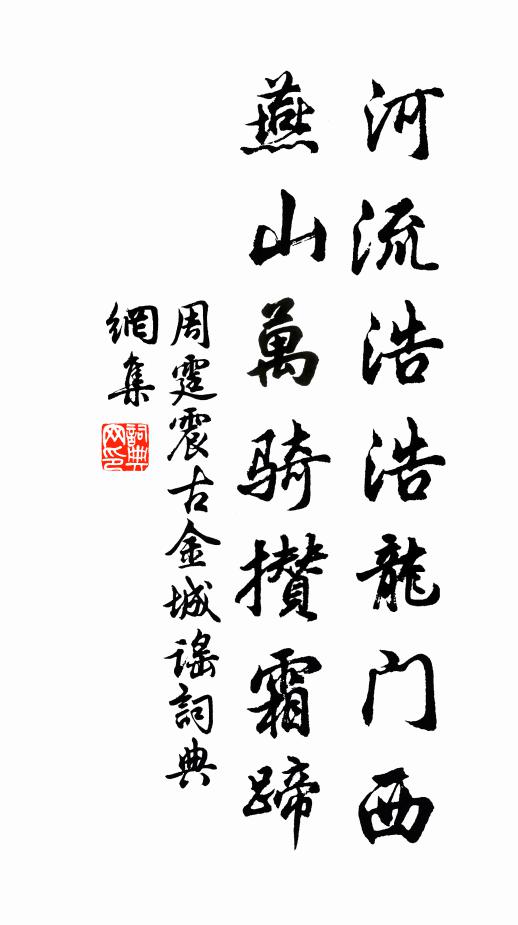 河流浩浩龍门西
燕山萬骑攢霜蹄
周霆震古金城謠詞典
網集
詞典网印